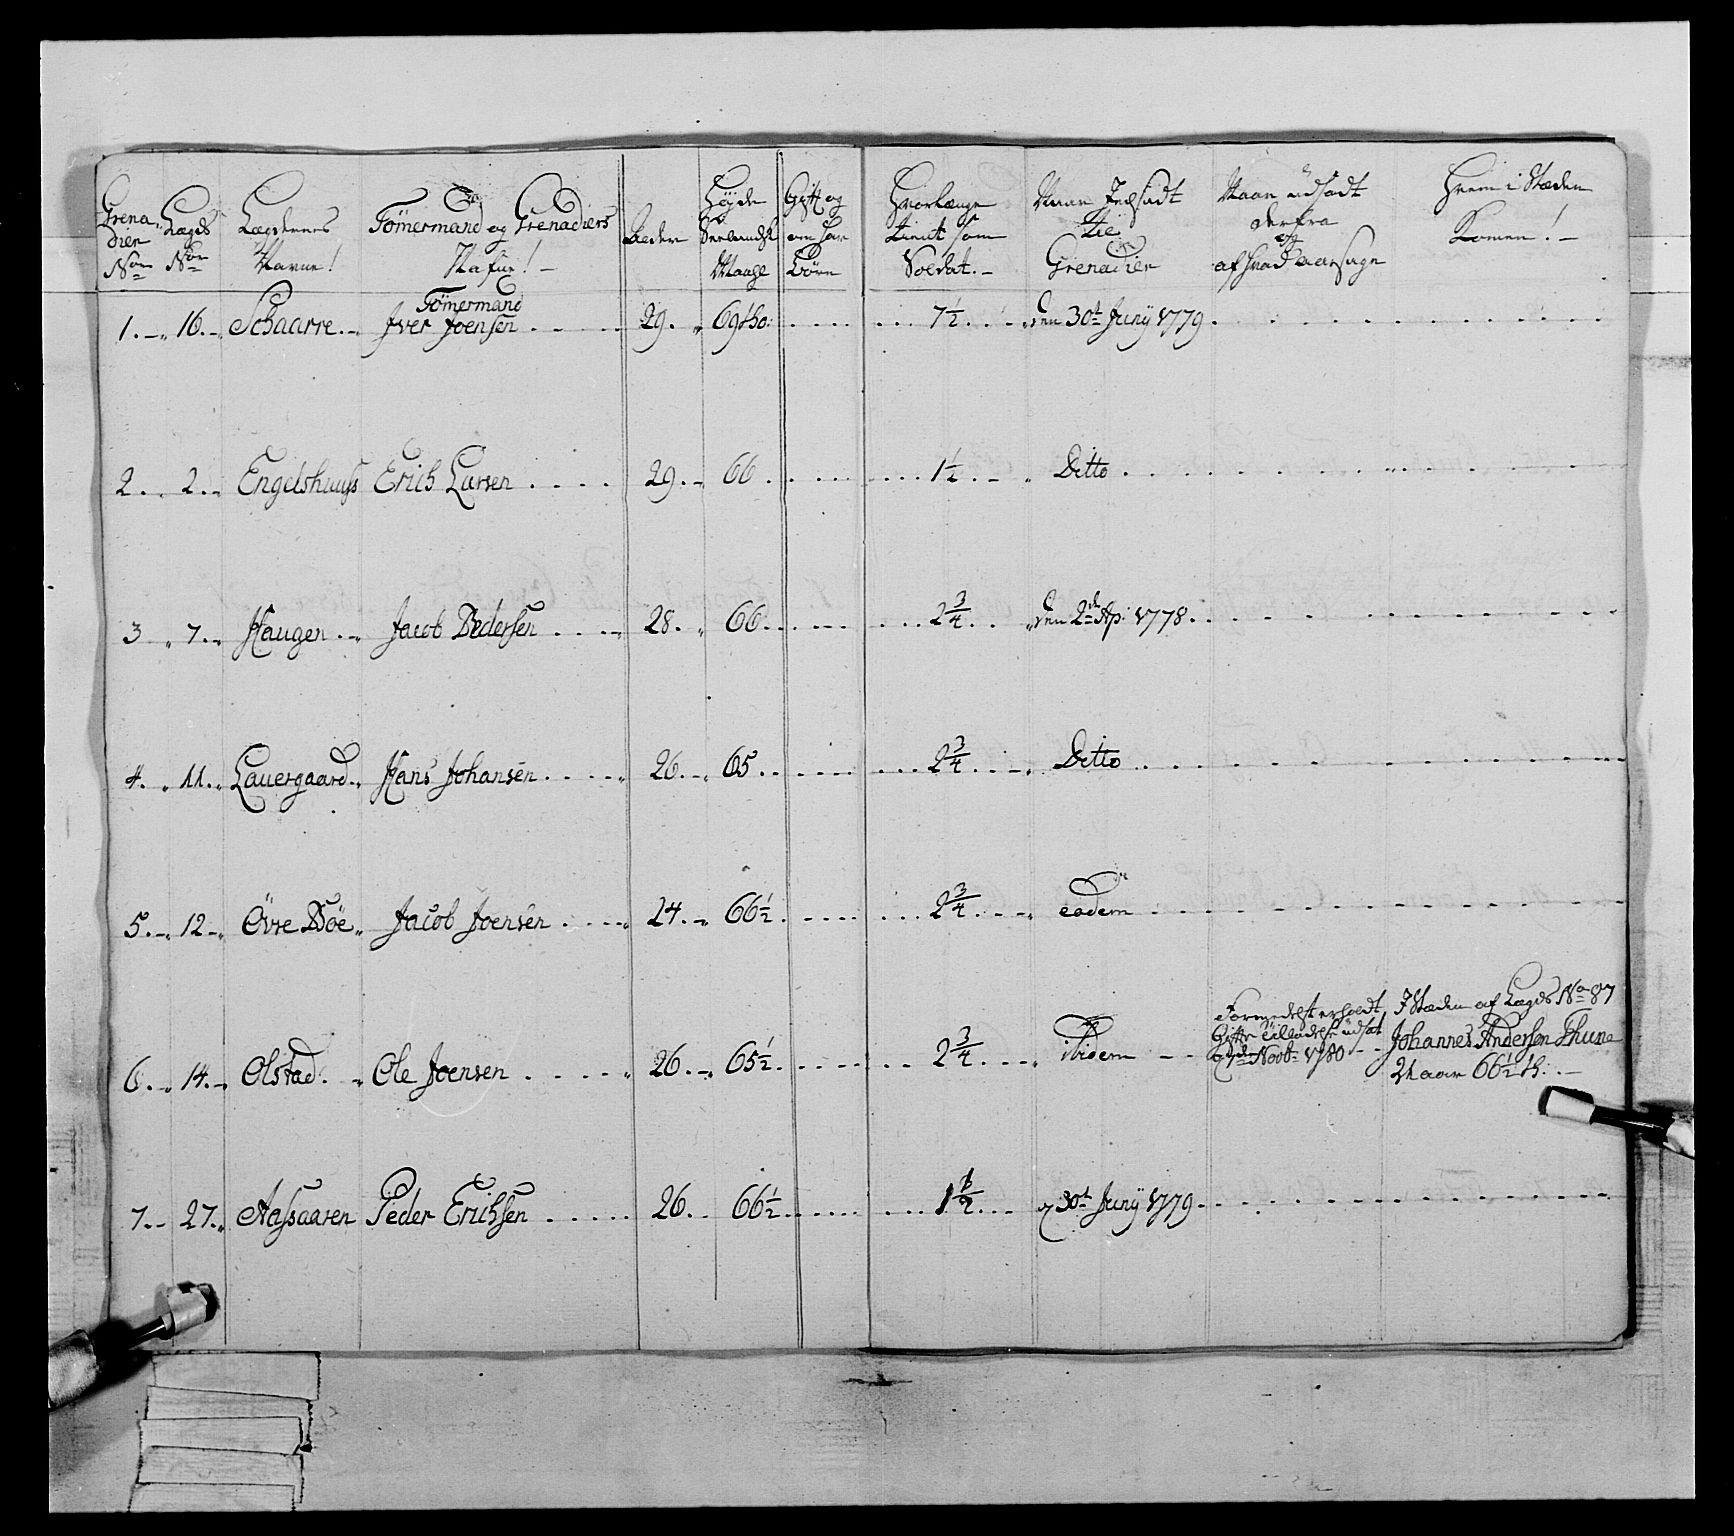 Grena
dier
No
Lægds
No
Lægdernes
Navne!
Tömermand og Grenadiers
Nafne!
Alder
Höyde
Seelandsk
Maage
Gift og
om har
Börn
Hvorlænge
tient som
Soldat.
Naar Indsadt
til
Grenadier
Naar udsadt
derfra
og
af hvad aarsage
Hvem i Stæden
Komen!
1. 16. Schaarre. Tömermand
Iver Joensen 29. 69 tho: 7½ den 30t Junij 1779
2. 2. Engelshuus Erich Larsen 29. 66 1½ Ditto
3 7. Haugen Jacob Pedersen 28. 66 2¾ den 2de Ap: 1778
4. 11. Lauergaard Hans Johansen 26 65 2¾ Ditto
5. 12 Övre Döe Jacob Joensen 24. 66½ 2¾ eodem
6. 14. Olstad Ole Joensen 26. 65½ 2¾ ibidem
Formedelst erholdt
Gifte tilladelse udsat
Novbr 1780
I Stæden af Lægds No 87
Johannes Andersen Thune
21 aar 66½ th.
7. 27. Aassaaren Peder Erichsen 26. 66½ 1½ 30t Junij 1779